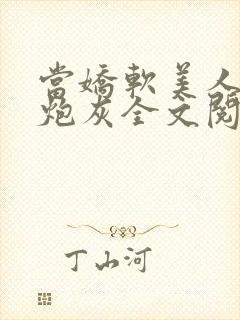 當嬌軟美人
炮灰全文閱
丁山河